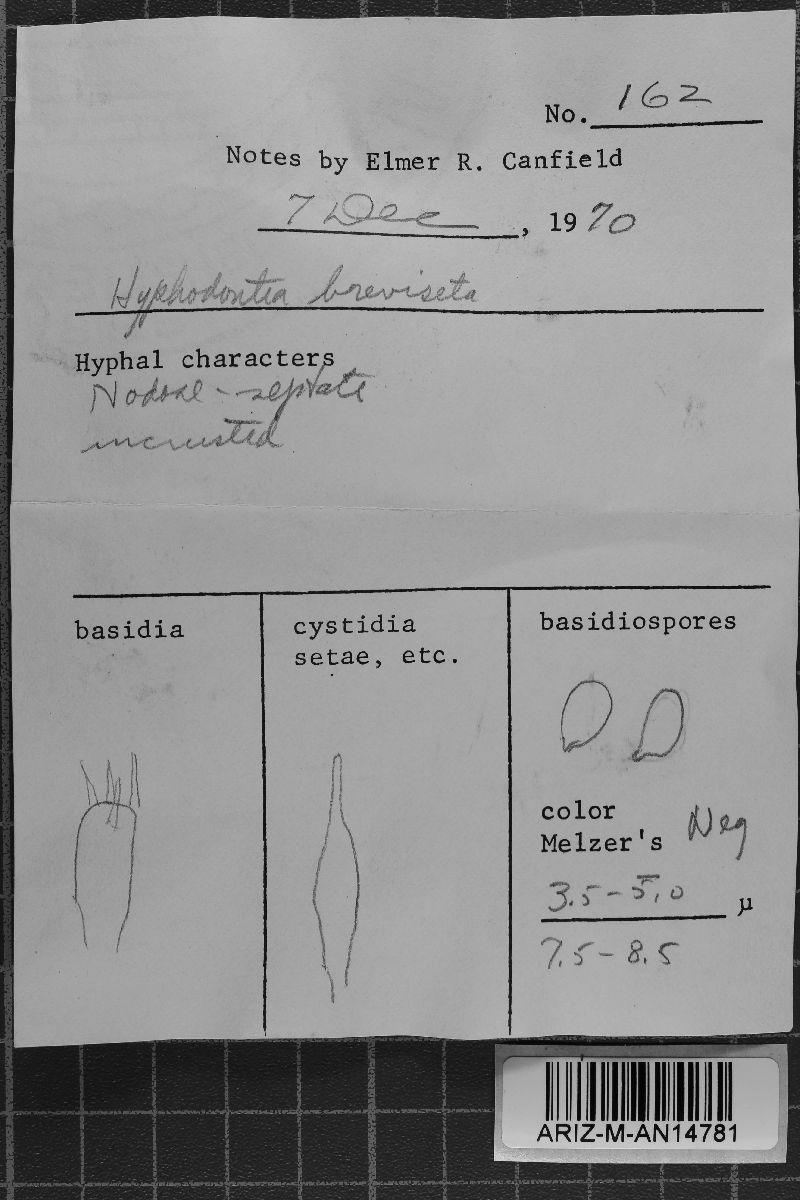 No. 162
Notes by Elmer R. Canfield
7 Dec, 1970
Hyphodontia breviseta
Hyphal characters
Nodose-septate
incrusted
basidia
cystidia
setae, etc.
basidiospores
color
Melzer's Neg
3.5-5.0 µ
7.5-8.5
ARIZ-M-AN14781